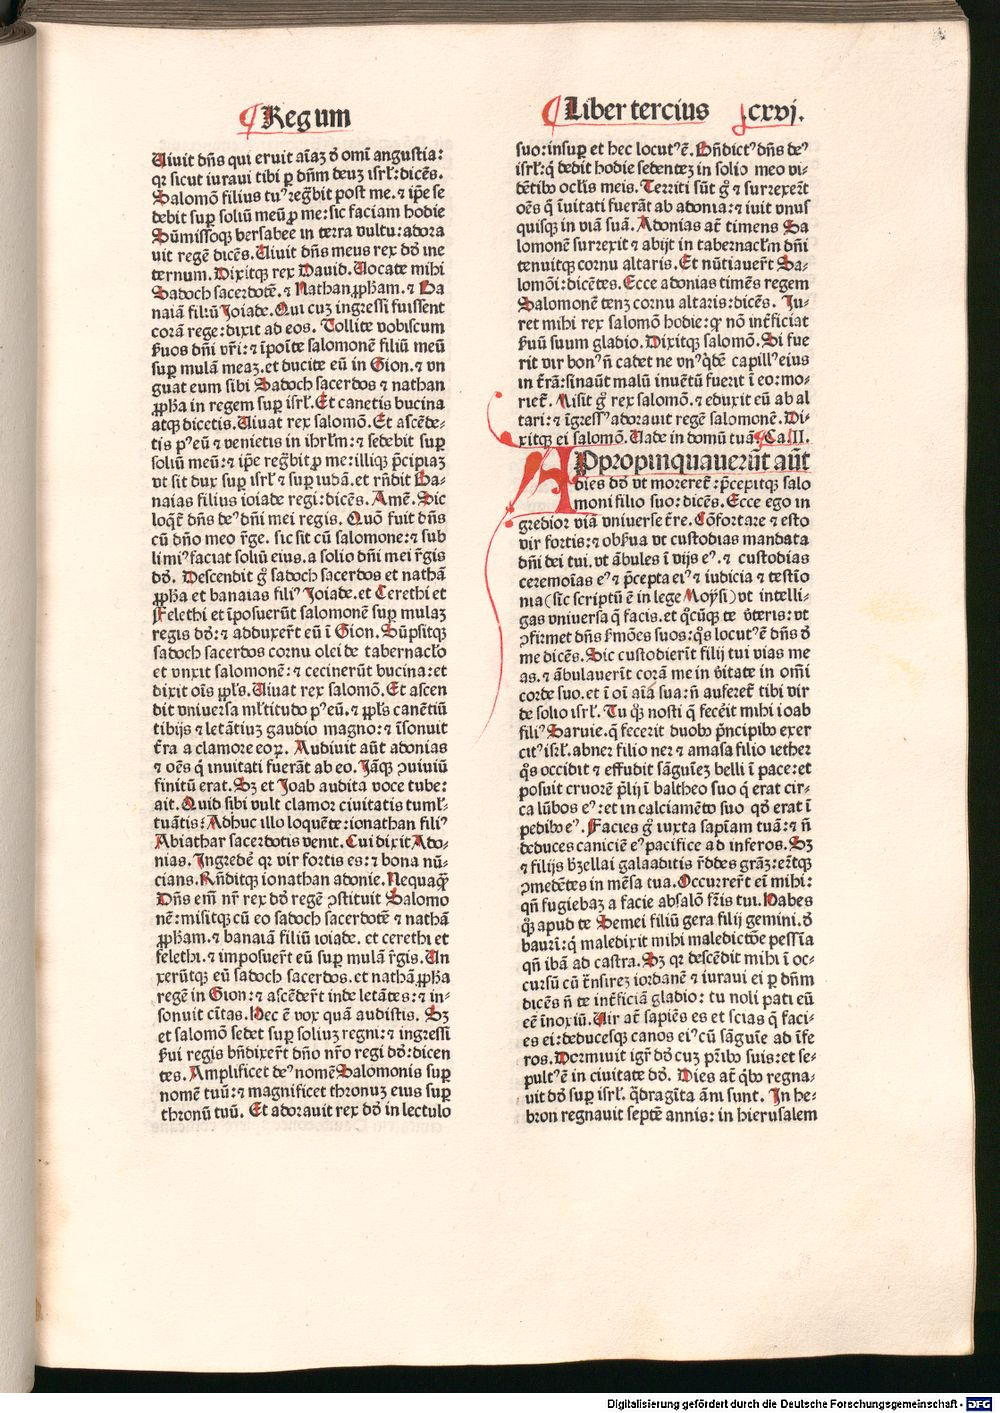 Regum
Liber tercius .cxvj.
Uivit dñs qui eruit aĩaʒ ð omĩ angustia:
qꝛ sicut iuravi tibi ꝑ dñm deuʒ isrł: dicẽs.
Salomõ filius tuꝰ regñbit post me. ⁊ ip̃e se
debit suꝑ soliũ meũ ꝓ me: sic faciam hodie
Sũmissoqꝫ bersabee in terra vultu: adora
vit regẽ dicẽs. Uivit dñs meus rex dð in e
ternum. Dixitqꝫ rex David. Vocate mihi
Sadoch sacerdotẽ. ⁊ Nathan ꝓpħam. ⁊ Ba
naiã filiũ Joiade. Qui cuʒ ingressi fuissent
corã rege: dixit ad eos. Tollite vobiscum
ẜuos dñi vr̃i: ⁊ ĩpoĩte salomonẽ filiũ meũ
suꝑ mulã meaʒ. et ducite eũ in Gion. ⁊ vn
guat eum sibi Sadoch sacerdos ⁊ nathan
ꝓpħa in regem suꝑ isrł. Et canetis bucina
atqꝫ dicetis. Uivat rex salomõ. Et ascẽde⸗
tis pꝰ eũ ⁊ venietis in ihrłm: ⁊ sedebit suꝑ
soliũ meũ: ⁊ ip̃e regñbit ꝓ me: illiqꝫ p̃cipiaʒ
vt sit dux suꝑ isrł ⁊ suꝑ iudã. et rñdit Ba⸗
naias filius ioiade regi: dicẽs. Amẽ. Sic
loq̃t̃ dñs deꝰ dñi mei regis. Quõ fuit dñs
cũ dño meo r̃ge. sic sit cũ salomone: ⁊ sub
limiꝰ faciat soliũ eius. a solio dñi mei r̃gis
dð. Descendit g̊ sadoch sacerdos et nathã
ꝓpħa et banaias filiꝰ Joiade. et Cerethi et
Felethi et ĩposuerũt salomonẽ suꝑ mulaʒ
regis dð: ⁊ adduxer̃t eũ ĩ Gion. Sũpsitqꝫ
sadoch sacerdos cornu olei de tabernacło
et vnxit salomonẽ: ⁊ cecinerũt bucina: et
dixit oĩs ꝓpłs. Uivat rex salomõ. Et ascen
dit vniversa młtitudo pꝰ eũ. ⁊ ꝓpłs canẽtiũ
tibijs ⁊ letãtiuʒ gaudio magno: ⁊ ĩsonuit
t̃ra a clamore eoꝝ. Audivit aũt adonias
⁊ oẽs q̃ invitati fuerãt ab eo. Jãqꝫ ↄviuiũ
finitũ erat. Sʒ et Joab audita voce tube:
ait. Quid sibi vult clamor civitatis tumł⸗
tuãtis: Adhuc illo loquẽte: ionathan filiꝰ
Abiathar sacerdotis venit. Cui dixit Ado⸗
nias. Ingredẽ qꝛ vir fortis es: ⁊ bona nũ⸗
cians. Rñditqꝫ ionathan adonie. Nequaq̃
Dñs em̃ nr̃ rex dð regẽ ↄstituit Salomo
nẽ: misitqꝫ cũ eo sadoch sacerdotẽ ⁊ nathã
ꝓpħam. ⁊ banaiã filiũ ioiade. et cerethi et
felethi. ⁊ imposuer̃t eũ suꝑ mulã r̃gis. Un
xerũtqꝫ eũ sadoch sacerdos. et nathã ꝓpħa
regẽ in Gion: ⁊ ascẽder̃t inde letãtes: ⁊ in⸗
sonuit ci̇tas. Hec ẽ vox quã audistis. Sʒ
et salomõ sedet suꝑ soliuʒ regni: ⁊ ingressi
ẜui regis bñdixer̃t dño nr̃o regi dð: dicen
tes. Amplificet deꝰ nomẽ Salomonis suꝑ
nomẽ tuũ: ⁊ magnificet thronuʒ eius suꝑ
thronũ tuũ. Et adoravit rex dð in lectulo
suo: insuꝑ et hec locutꝰ ẽ. Bñdictꝰ dñs deꝰ
isrł: q̃ dedit hodie sedenteʒ in solio meo vi⸗
dẽtibꝰ ocłis meis. Territi sũt g̊ ⁊ surrexer̃t
oẽs q̃ ĩuitati fuerãt ab adonia: ⁊ iuit vnus
quisqꝫ in viã suã. Adonias at̃ timens Sa
lomonẽ surrexit ⁊ abijt in tabernacłm dñi
tenuitqꝫ cornu altaris. Et nũtiaver̃t Sa⸗
lomõi: dicẽtes. Ecce adonias timẽs regem
Salomonẽ tenʒ cornu altaris: dicẽs. Ju⸗
ret mihi rex salomõ hodie: qꝙ nõ int̃ficiat
ẜuũ suum gladio. Dixitqꝫ salomõ. Si fue
rit vir bonꝰ ñ cadet ne vnꝰ q̃dẽ capillꝰ eius
in t̃rã: sinaũt malũ inuẽtũ fuerit ĩ eo: mo⸗
riet̃. Misit g̊ rex salomõ. ⁊ eduxit eũ ab al
tari: ⁊ ĩgressꝰ adoravit regẽ salomonẽ. Di⸗
xitqꝫ ei salomõ. Uade in domũ tuã. Ca. II.
APpropinquaverũt aũt
dies dð vt moreret̃: p̃cepitqꝫ salo
moni filio suo: dicẽs. Ecce ego in
gredior viã vniverse t̃re. Cõfortare ⁊ esto
vir fortis: ⁊ obẜua vt custodias mandata
dñi dei tui. vt ãbules ĩ vijs eꝰ. ⁊ custodias
ceremoĩas eꝰ ⁊ p̃cepta eiꝰ ⁊ iudicia ⁊ testĩo
nia (sic̃ scriptũ ẽ in lege Moysi) vt intelli⸗
gas vniversa q̃ facis. et q̊cũqꝫ te ṽteris: vt
ↄfirmet dñs ẜmões suos: q̊s locutꝰ ẽ dñs ð
me dicẽs. Sic custodierĩt filij tui vias me
as. ⁊ ãbulauerĩt corã me in ṽitate in om̃i
corde suo. et ĩ oĩ aĩa sua: ñ auferet̃ tibi vir
de solio isrł. Tu q̊ꝫ nosti q̃ fecẽit mihi ioab
filiꝰ Sarvie. q̃ fecerit duobꝰ p̃ncipibꝰ exer
citꝰ isrł. abner filio ner ⁊ amasa filio iether
q̊s occidit ⁊ effudit sãguĩeʒ belli ĩ pace: et
posuit cruorẽ p̃lij ĩ baltheo suo q̃ erat cir⸗
ca lũbos eꝰ: et in calciamẽto suo qð erat ĩ
pedibꝰ eꝰ. Facies g̊ iuxta sapiãm tuã: ⁊ ñ
deduces caniciẽ eꝰ pacifice ad inferos. Sʒ
⁊ filijs b̃zellai galaaditis r̃ddes grãʒ: er̃tqꝫ
ↄmedẽtes in mẽsa tua. Occurrer̃t eĩ mihi:
qñ fugiebaʒ a facie absalõ fr̃is tui. Habes
q̊ꝫ apud te Semei filiũ gera filij gemini. ð
baurĩ: q̃ maledixit mihi maledictõe pessĩa
qñ ibã ad castra. Sʒ qꝛ descẽdit mihi ĩ oc⸗
cursũ cũ t̃nsirez iordanẽ ⁊ iuravi ei ꝑ dñm
dicẽs ñ te int̃ficiã gladio: tu noli pati eũ
eẽ ĩnoxiũ. Uir at̃ sapiẽs es et scias q̃ faci⸗
es ei: deducesqꝫ canos eiꝰ cũ sãguĩe ad ĩfe
ros. Dormiuit igr̃ dð cuʒ pr̃ibꝰ suis: et se⸗
pultꝰ ẽ in civitate dð. Dies at̃ q̃bꝰ regna⸗
vit dð suꝑ isrł. q̃dragĩta ãni sunt. In he⸗
bron regnavit septẽ annis: in hierusalem
Digitalisierung gefördert durch die Deutsche Forschungsgemeinschaft - DFG